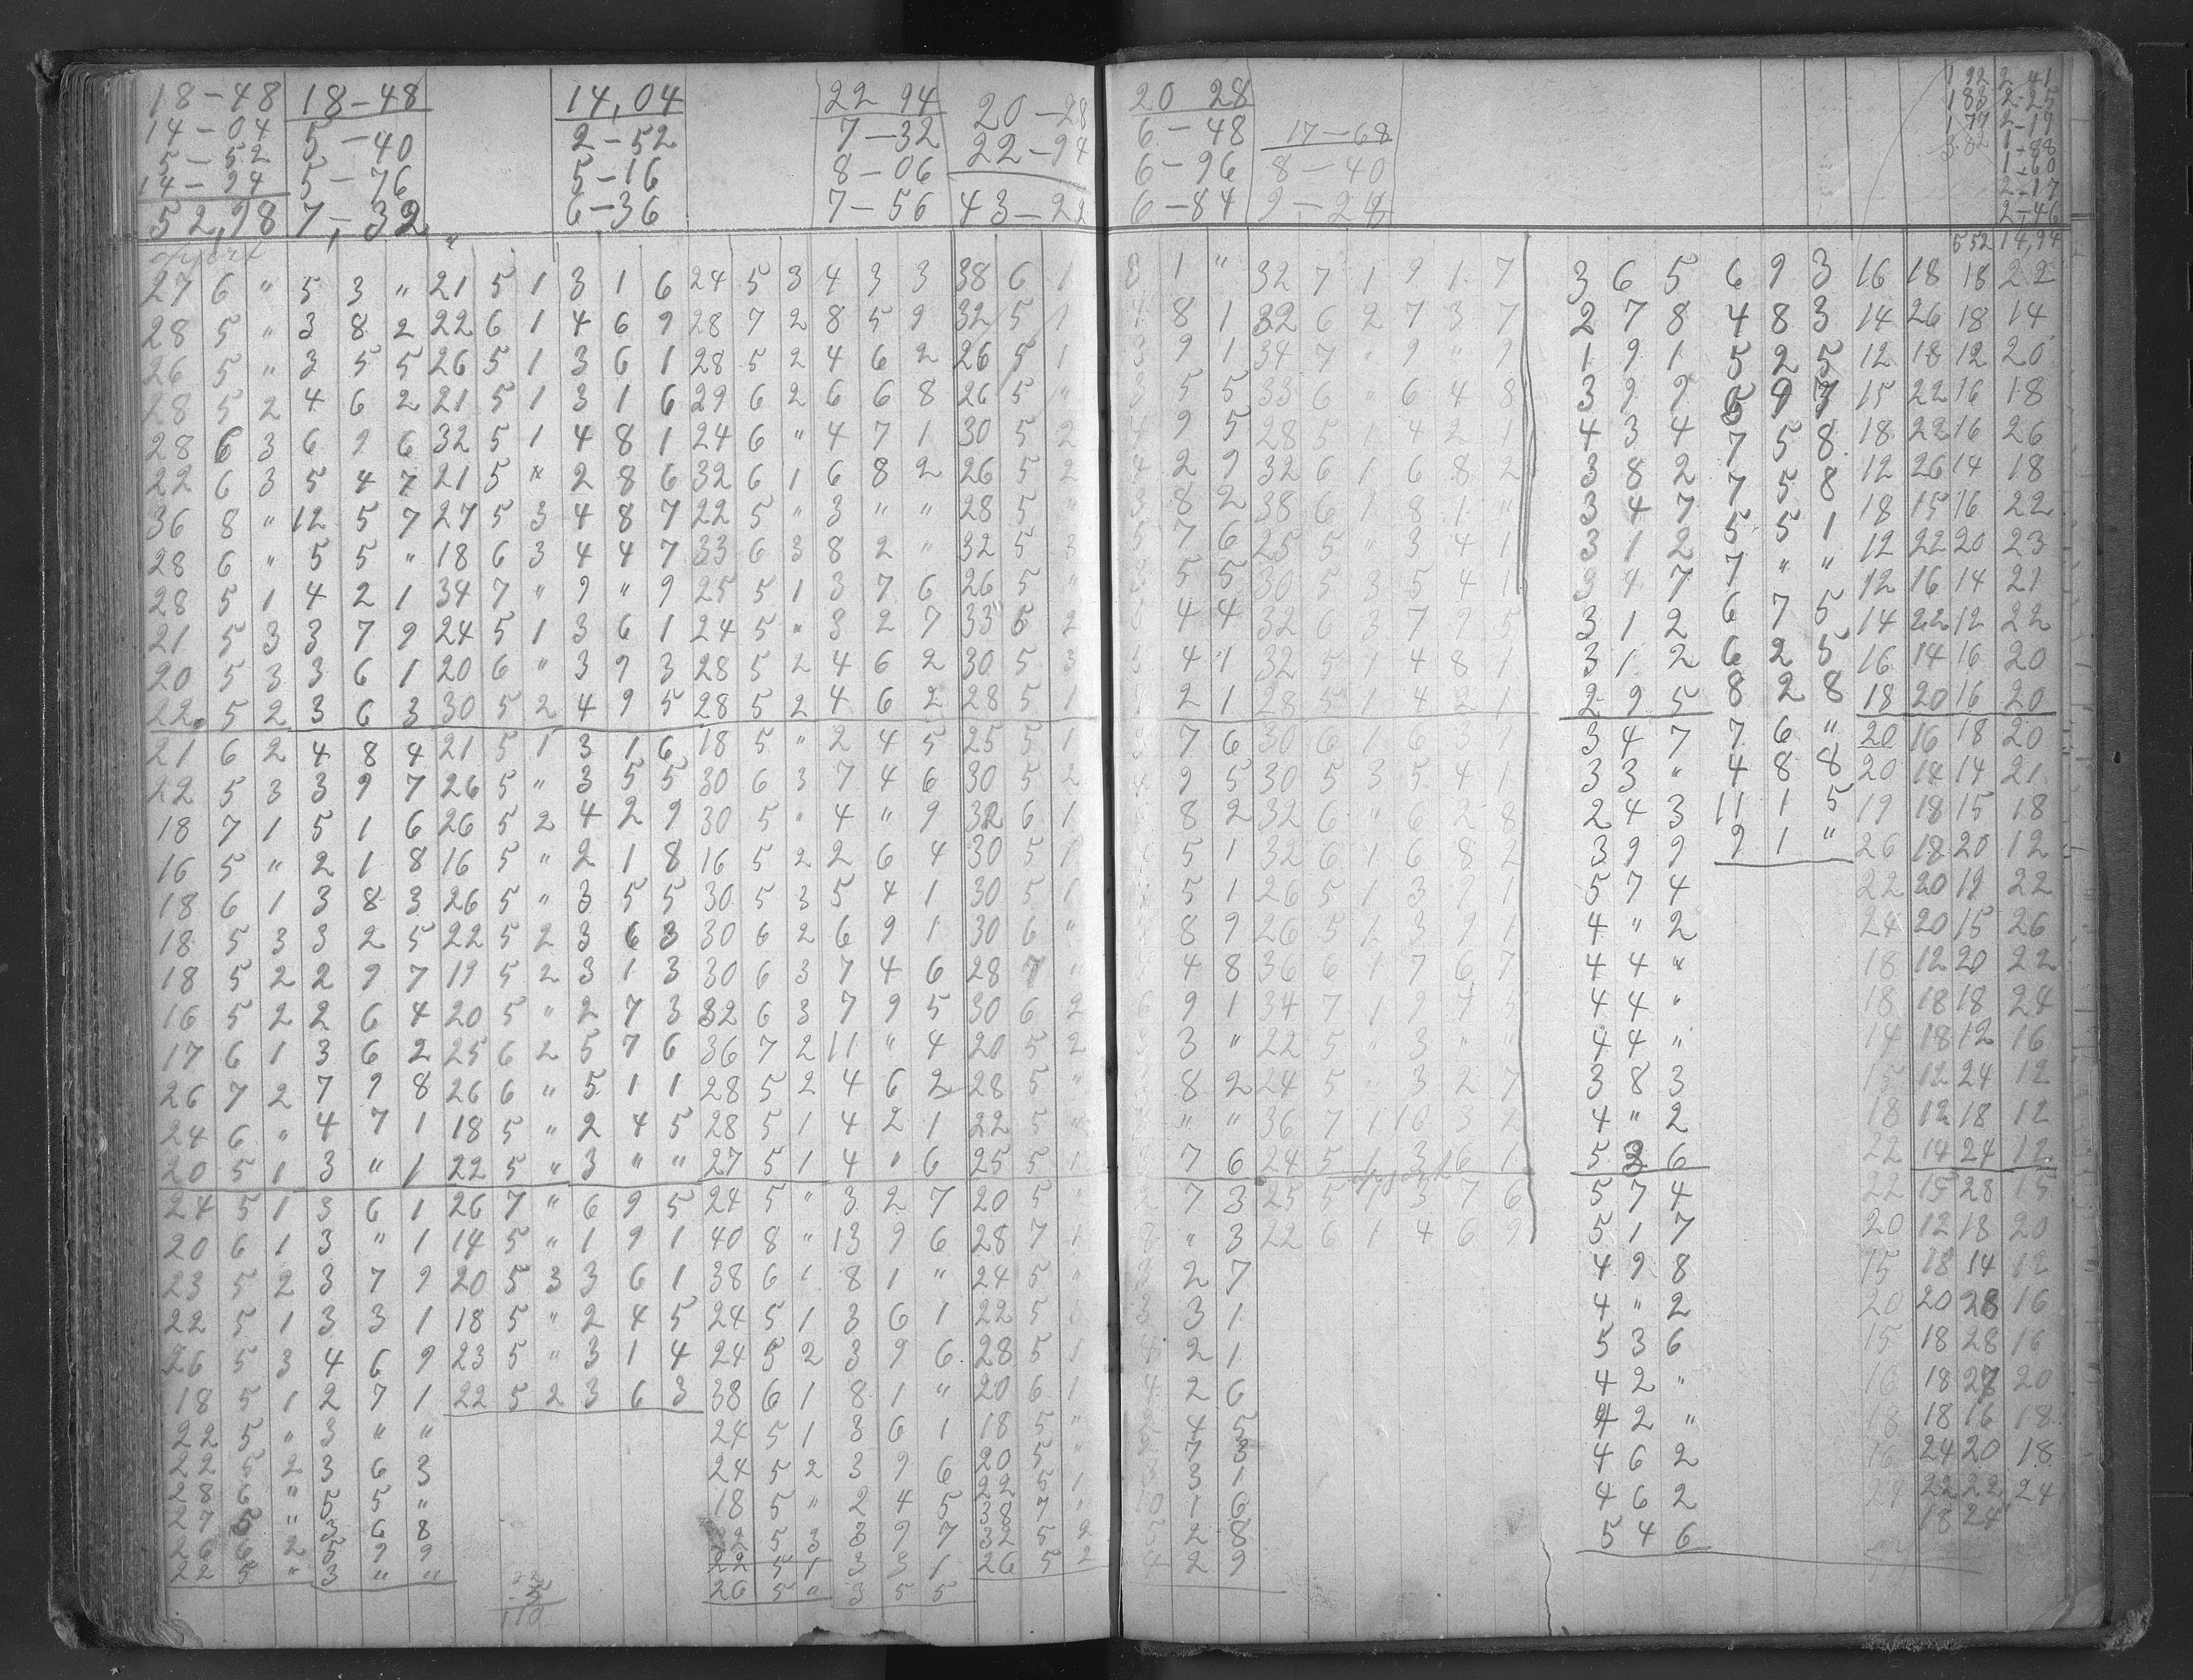 18-48 18-48 14,04 22 94 20-28 20 28 192 2-41
14-04 5-40 2-52 7-32 22-94 6-48 17-68 183 2-25
5-52 5-76 5-16 8-06 43-22 6-96 8-40 177 2-17
14-94 7,32 6-36 7-56 6-84 9-28 1-88
52,98 1-60
2-17
2-46
552 14,94
27 6 " 5 3 " 21 5 1 3 1 6 24 5 3 4 3 3 38 6 1 8 1 " 32 7 1 9 1 7 3 6 5 6 9 3 16 18 18 22
28 5 " 3 8 2 22 6 1 4 6 9 28 7 2 8 5 9 32 5 1 4 8 1 32 6 2 7 3 7 2 7 8 4 8 3 14 26 18 14
26 5 " 3 5 5 26 5 1 3 6 1 28 5 2 4 6 2 26 5 1 3 9 1 34 7 " 9 " 9 1 9 1 5 2 5 12 18 12 20
28 5 2 4 6 2 21 5 1 3 1 6 29 6 2 6 6 8 26 5 " 3 5 5 33 6 " 6 4 8 3 9 9 5 9 7 15 22 16 18
28 6 3 6 9 6 32 5 1 4 8 1 24 6 " 4 7 1 30 5 2 4 9 5 28 5 1 4 2 1 4 3 4 7 5 8 18 22 16 26
22 6 3 5 4 7 21 5 " 2 8 6 32 6 1 6 8 2 26 5 2 4 2 9 32 6 1 6 8 2 3 8 2 7 5 8 12 26 14 18
36 8 " 12 5 7 27 5 3 4 8 7 22 5 " 3 " " 28 5 " 3 8 2 38 6 1 8 1 " 3 4 7 5 5 1 18 15 16 22
28 6 " 5 5 " 18 6 3 4 4 7 33 6 3 8 2 " 32 5 3 5 7 6 25 5 " 3 4 1 3 1 2 7 " " 12 22 20 23
28 5 1 4 2 1 34 7 " 9 " 9 25 5 1 3 7 6 26 5 " 3 5 5 30 5 3 5 4 1 3 4 7 6 7 5 12 16 14 21
21 5 3 3 7 9 24 5 1 3 6 1 24 5 " 3 2 7 33 6 2 4 4 32 6 3 7 9 5 3 1 2 6 2 5 14 22 12 22
20 5 3 3 6 1 20 6 " 3 9 3 28 5 2 4 6 2 30 5 3 5 4 1 32 5 1 4 8 1 3 1 2 8 2 8 16 14 16 20
22 5 2 3 6 3 30 5 2 4 9 5 28 5 2 4 6 2 28 5 1 2 1 28 5 1 4 2 1 2 9 5 7 6 " 18 20 16 20
21 6 2 4 8 4 21 5 1 3 1 6 18 5 " 2 4 5 25 5 1 3 7 6 30 6 1 6 3 9 3 4 7 4 8 8 20 16 18 20
22 5 3 3 9 7 26 5 " 3 5 5 30 6 3 7 4 6 30 5 2 4 9 5 30 5 3 5 4 1 3 3 " 11 1 5 20 14 14 21
18 7 1 5 1 6 26 5 2 4 2 9 30 5 " 4 " 9 32 6 1 6 8 2 32 6 " 6 2 8 2 4 3 9 1 " 19 18 15 18
16 5 " 2 1 8 16 5 " 2 1 8 16 5 2 2 6 4 30 5 1 4 5 1 32 6 1 6 8 2 3 9 9 26 18 20 12
18 6 1 3 8 3 26 5 " 3 5 5 30 5 3 5 4 1 30 5 1 4 5 1 26 5 1 3 9 1 5 7 4 22 20 12 22
18 5 3 3 2 5 22 5 2 3 6 3 30 6 2 6 9 1 30 6 " 5 8 9 26 5 1 3 9 1 4 " 2 24 20 15 26
18 5 2 2 9 7 19 5 2 3 1 3 30 6 3 7 4 6 28 7 " 7 4 8 36 6 1 7 6 7 4 4 " 18 12 20 22
16 5 2 2 6 4 20 5 " 2 7 3 32 6 3 7 9 5 30 6 2 6 9 1 34 7 1 9 7 5 4 4 " 18 18 18 24
17 6 1 3 6 2 25 6 2 5 7 6 36 7 2 11 " 4 20 5 2 3 3 " 22 5 " 3 " " 4 4 " 14 18 12 16
26 7 2 7 9 8 26 6 " 5 1 1 28 5 2 4 6 2 28 5 " 3 8 2 24 5 " 3 2 7 3 8 3 15 12 24 12
24 6 " 4 7 1 18 5 " 2 4 5 28 5 1 4 2 1 22 5 " 3 " " 36 7 1 10 3 2 4 " 2 18 12 18 12
20 5 1 3 " 1 22 5 " 3 " " 27 5 1 4 " 6 25 5 1 3 7 6 24 5 1 3 6 1 5 3 6 22 14 24 12
24 5 1 3 6 1 26 7 " 6 9 5 24 5 " 3 2 7 20 5 " 2 7 3 25 5 1 3 7 6 5 7 4 22 15 28 15
20 6 1 3 " 1 14 5 " 1 9 1 40 8 " 13 9 6 28 7 1 8 " 3 22 6 1 4 6 9 5 1 7 20 12 18 20
23 5 2 3 7 9 20 5 3 3 6 1 38 6 1 8 1 " 24 5 " 3 2 7 4 9 8 15 18 14 12
22 5 1 3 3 1 18 5 " 2 4 5 24 5 1 3 6 1 22 5 1 3 3 1 4 " 2 20 20 28 16
26 5 3 4 6 9 23 5 " 3 1 4 24 5 2 3 9 6 28 5 1 4 2 1 5 3 6 15 18 28 15
18 5 1 2 7 1 22 5 2 3 6 3 38 6 1 8 1 " 20 6 1 4 2 6 4 2 " 16 18 28 20
22 5 " 3 " " 24 5 1 3 6 1 18 5 " 2 4 5 4 2 " 18 18 16 18
22 5 2 3 6 3 24 5 2 3 9 6 20 5 " 2 7 3 4 6 2 16 24 20 18
28 6 " 5 5 " 18 5 " 2 4 5 22 5 1 3 3 1 4 6 2 24 22 22 24
27 5 " 3 6 8 22 5 3 3 9 7 38 7 " 10 1 6 5 4 6 18 24
26 6 2 5 9 9 22 5 1 3 3 1 32 5 2 5 2 8
22 5 " 3 " " 26 5 " 3 5 5 26 5 2 4 2 9
22
5
110